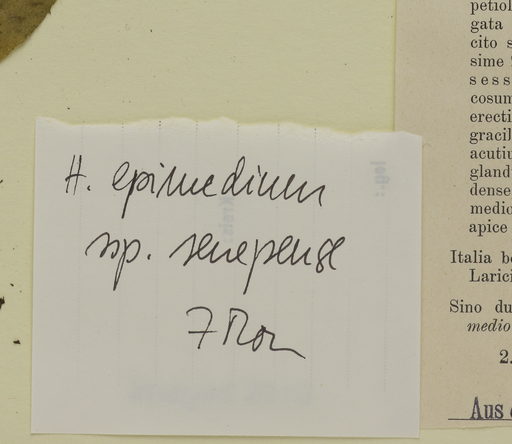 H. epimedium
ssp. senepense
petiol
gata
cito s
sime
sess
cosum
erecti
gracil
acutiu
gland
dense
medio
apice
Italia b
Larici
Sino du
medio
2.
Aus